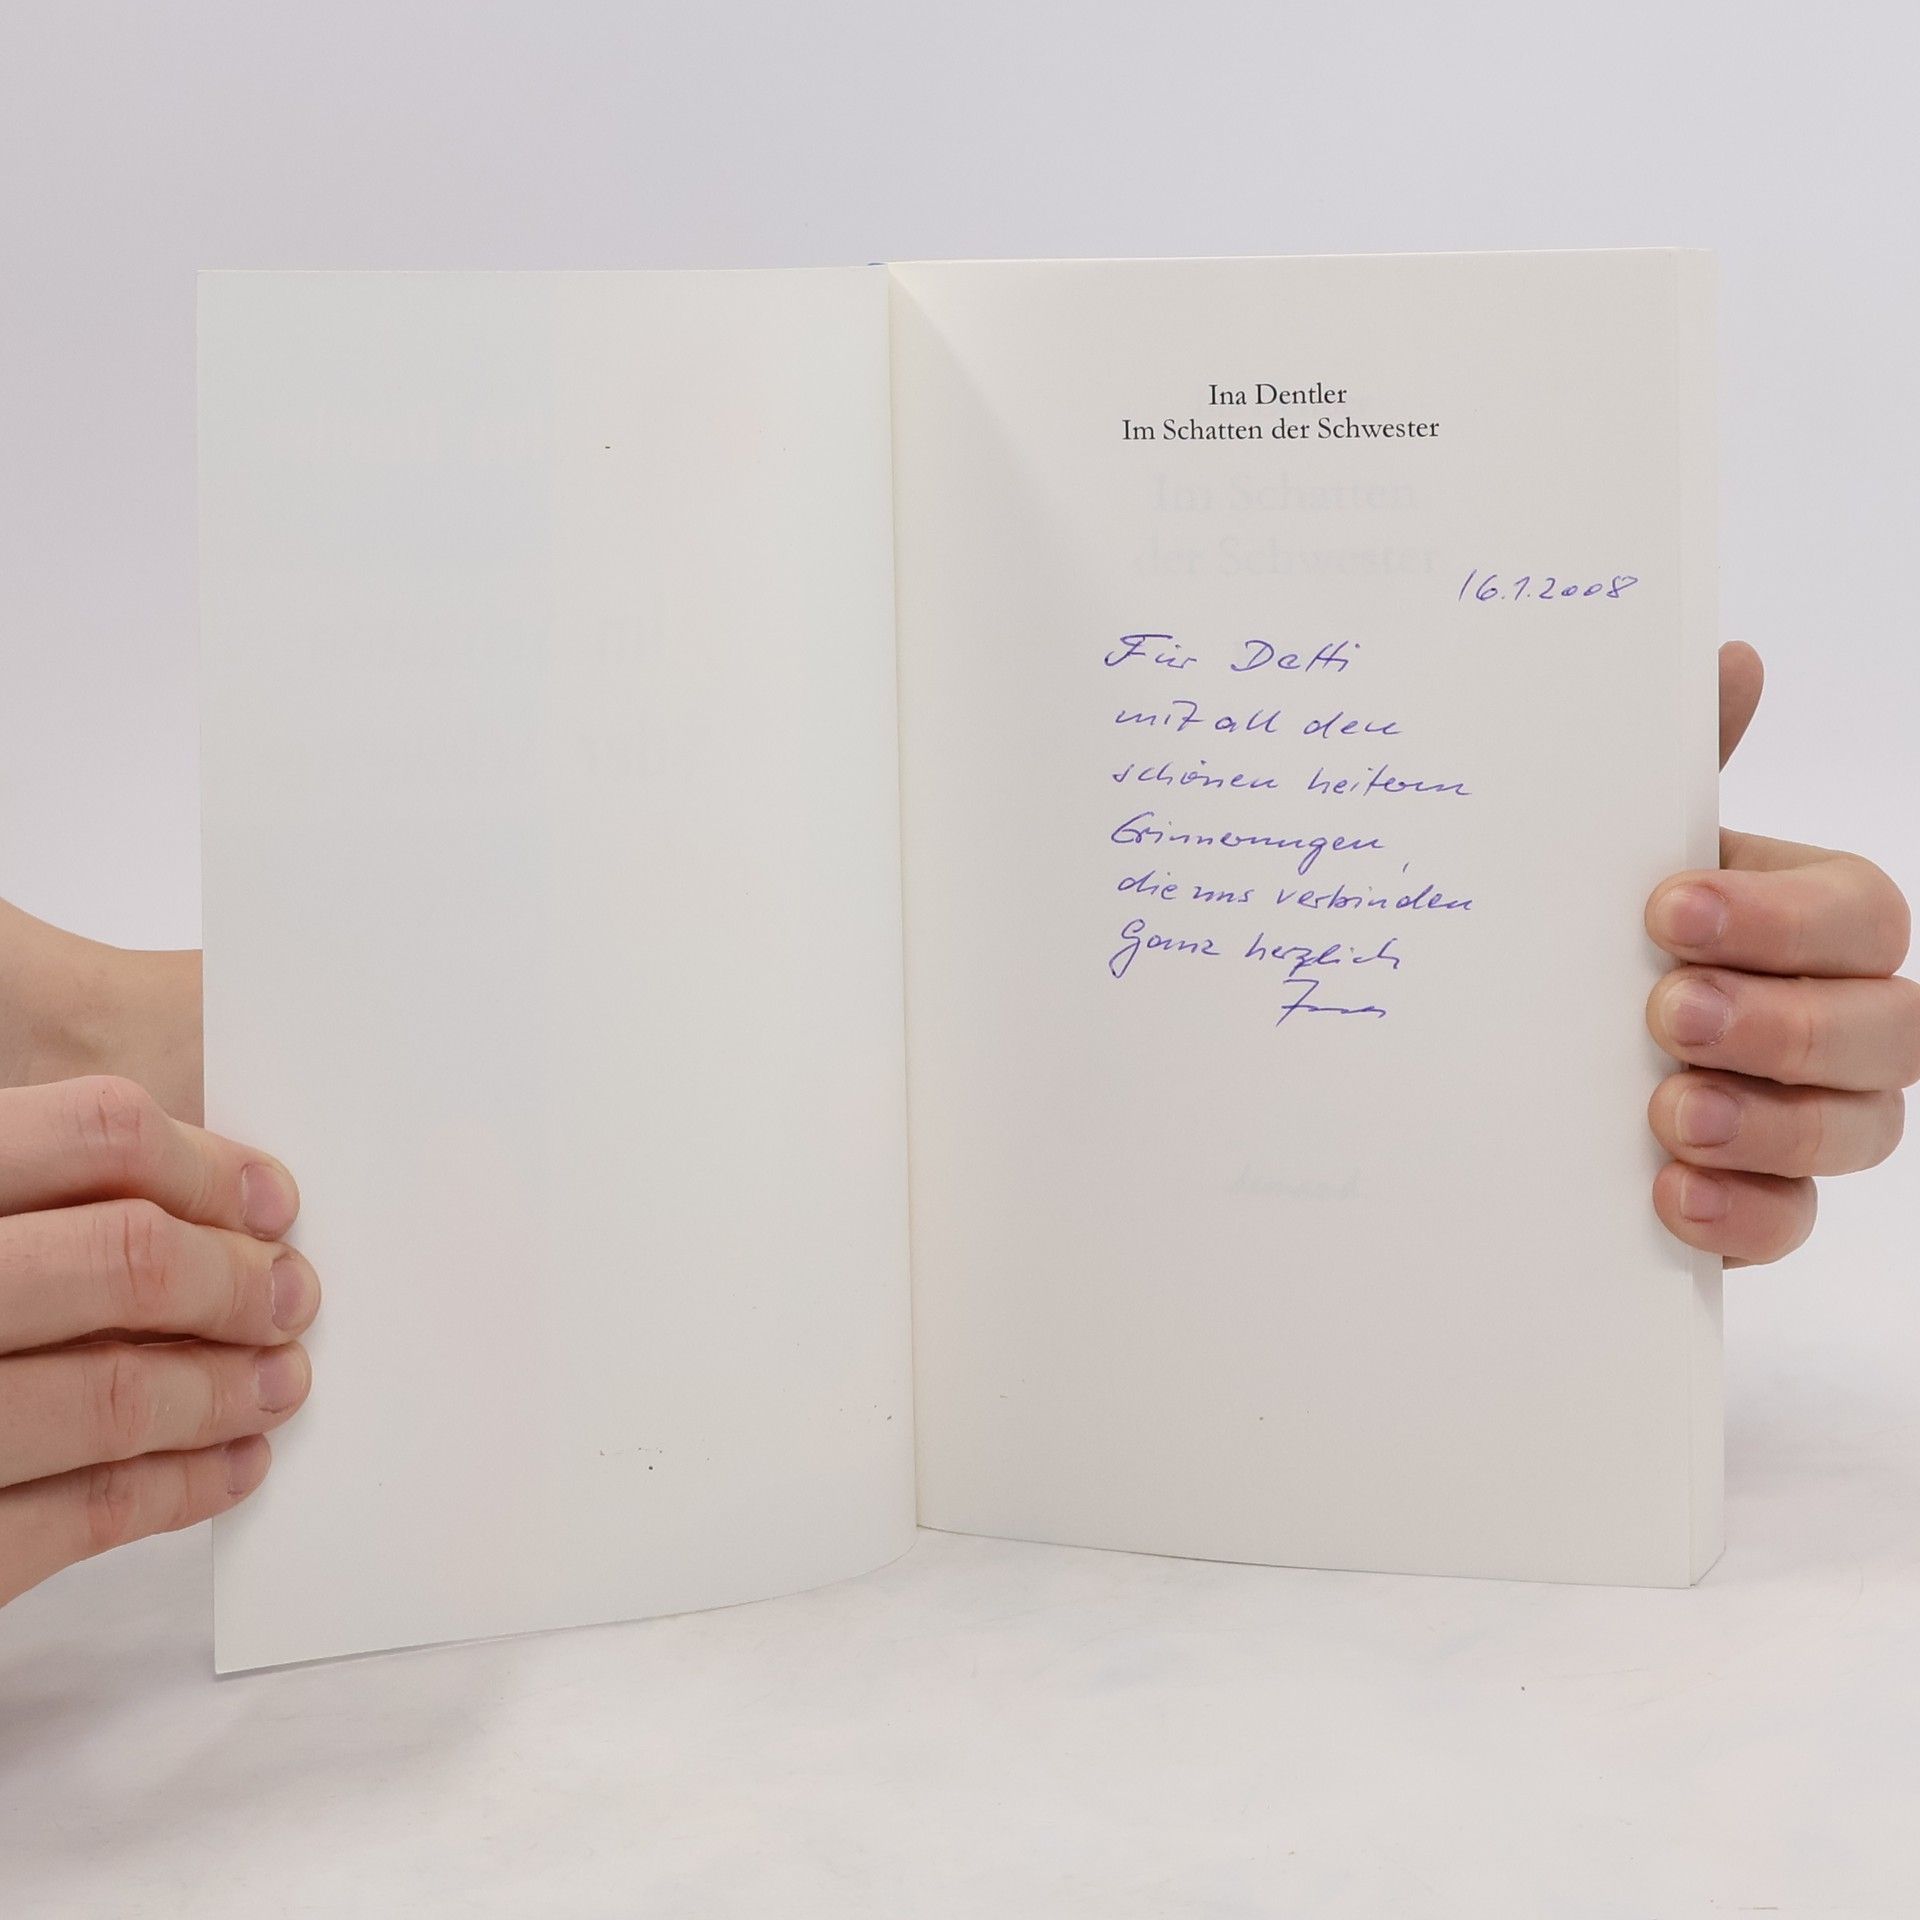 Ina Dentler
Im Schatten der Schwester
Im Schatten
der Schwester
16.1.2008
Für Datti
mit all den
schönen heitern
Erinnerungen,
die uns verbinden
Ganz herzlich